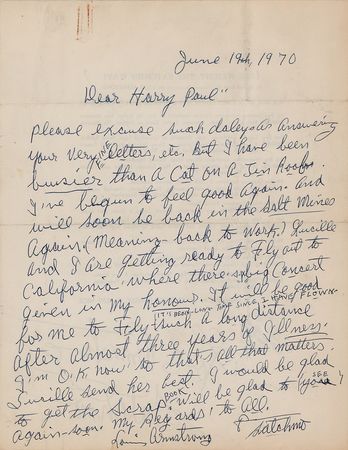 June 19th, 1970
Dear Harry Paul"
Please excuse such daley-as answering
your very FINE letters, etc. But I have been
busier than A Cat on A Tin Roof.
I've begun to feel good Again. And
will soon be back in the Salt Mines
Again. (Meaning-back to work.) Lucille
and I Are getting ready to Fly out to
California where there's a big Concert
given in My honour. It will be good
IT'S BEEN A LONG TIME SINCE, I HAVE FLOWN-
for me to Fly-such A long distance
After Almost three years of Illness.
I'm O.K. now so that's all that matters.
Lucille send her best. I would be glad
to get the Scrap BOOK. Will be glad to SEE you
again-soon. My Regards' to All.
Louis Armstrong Satchmo